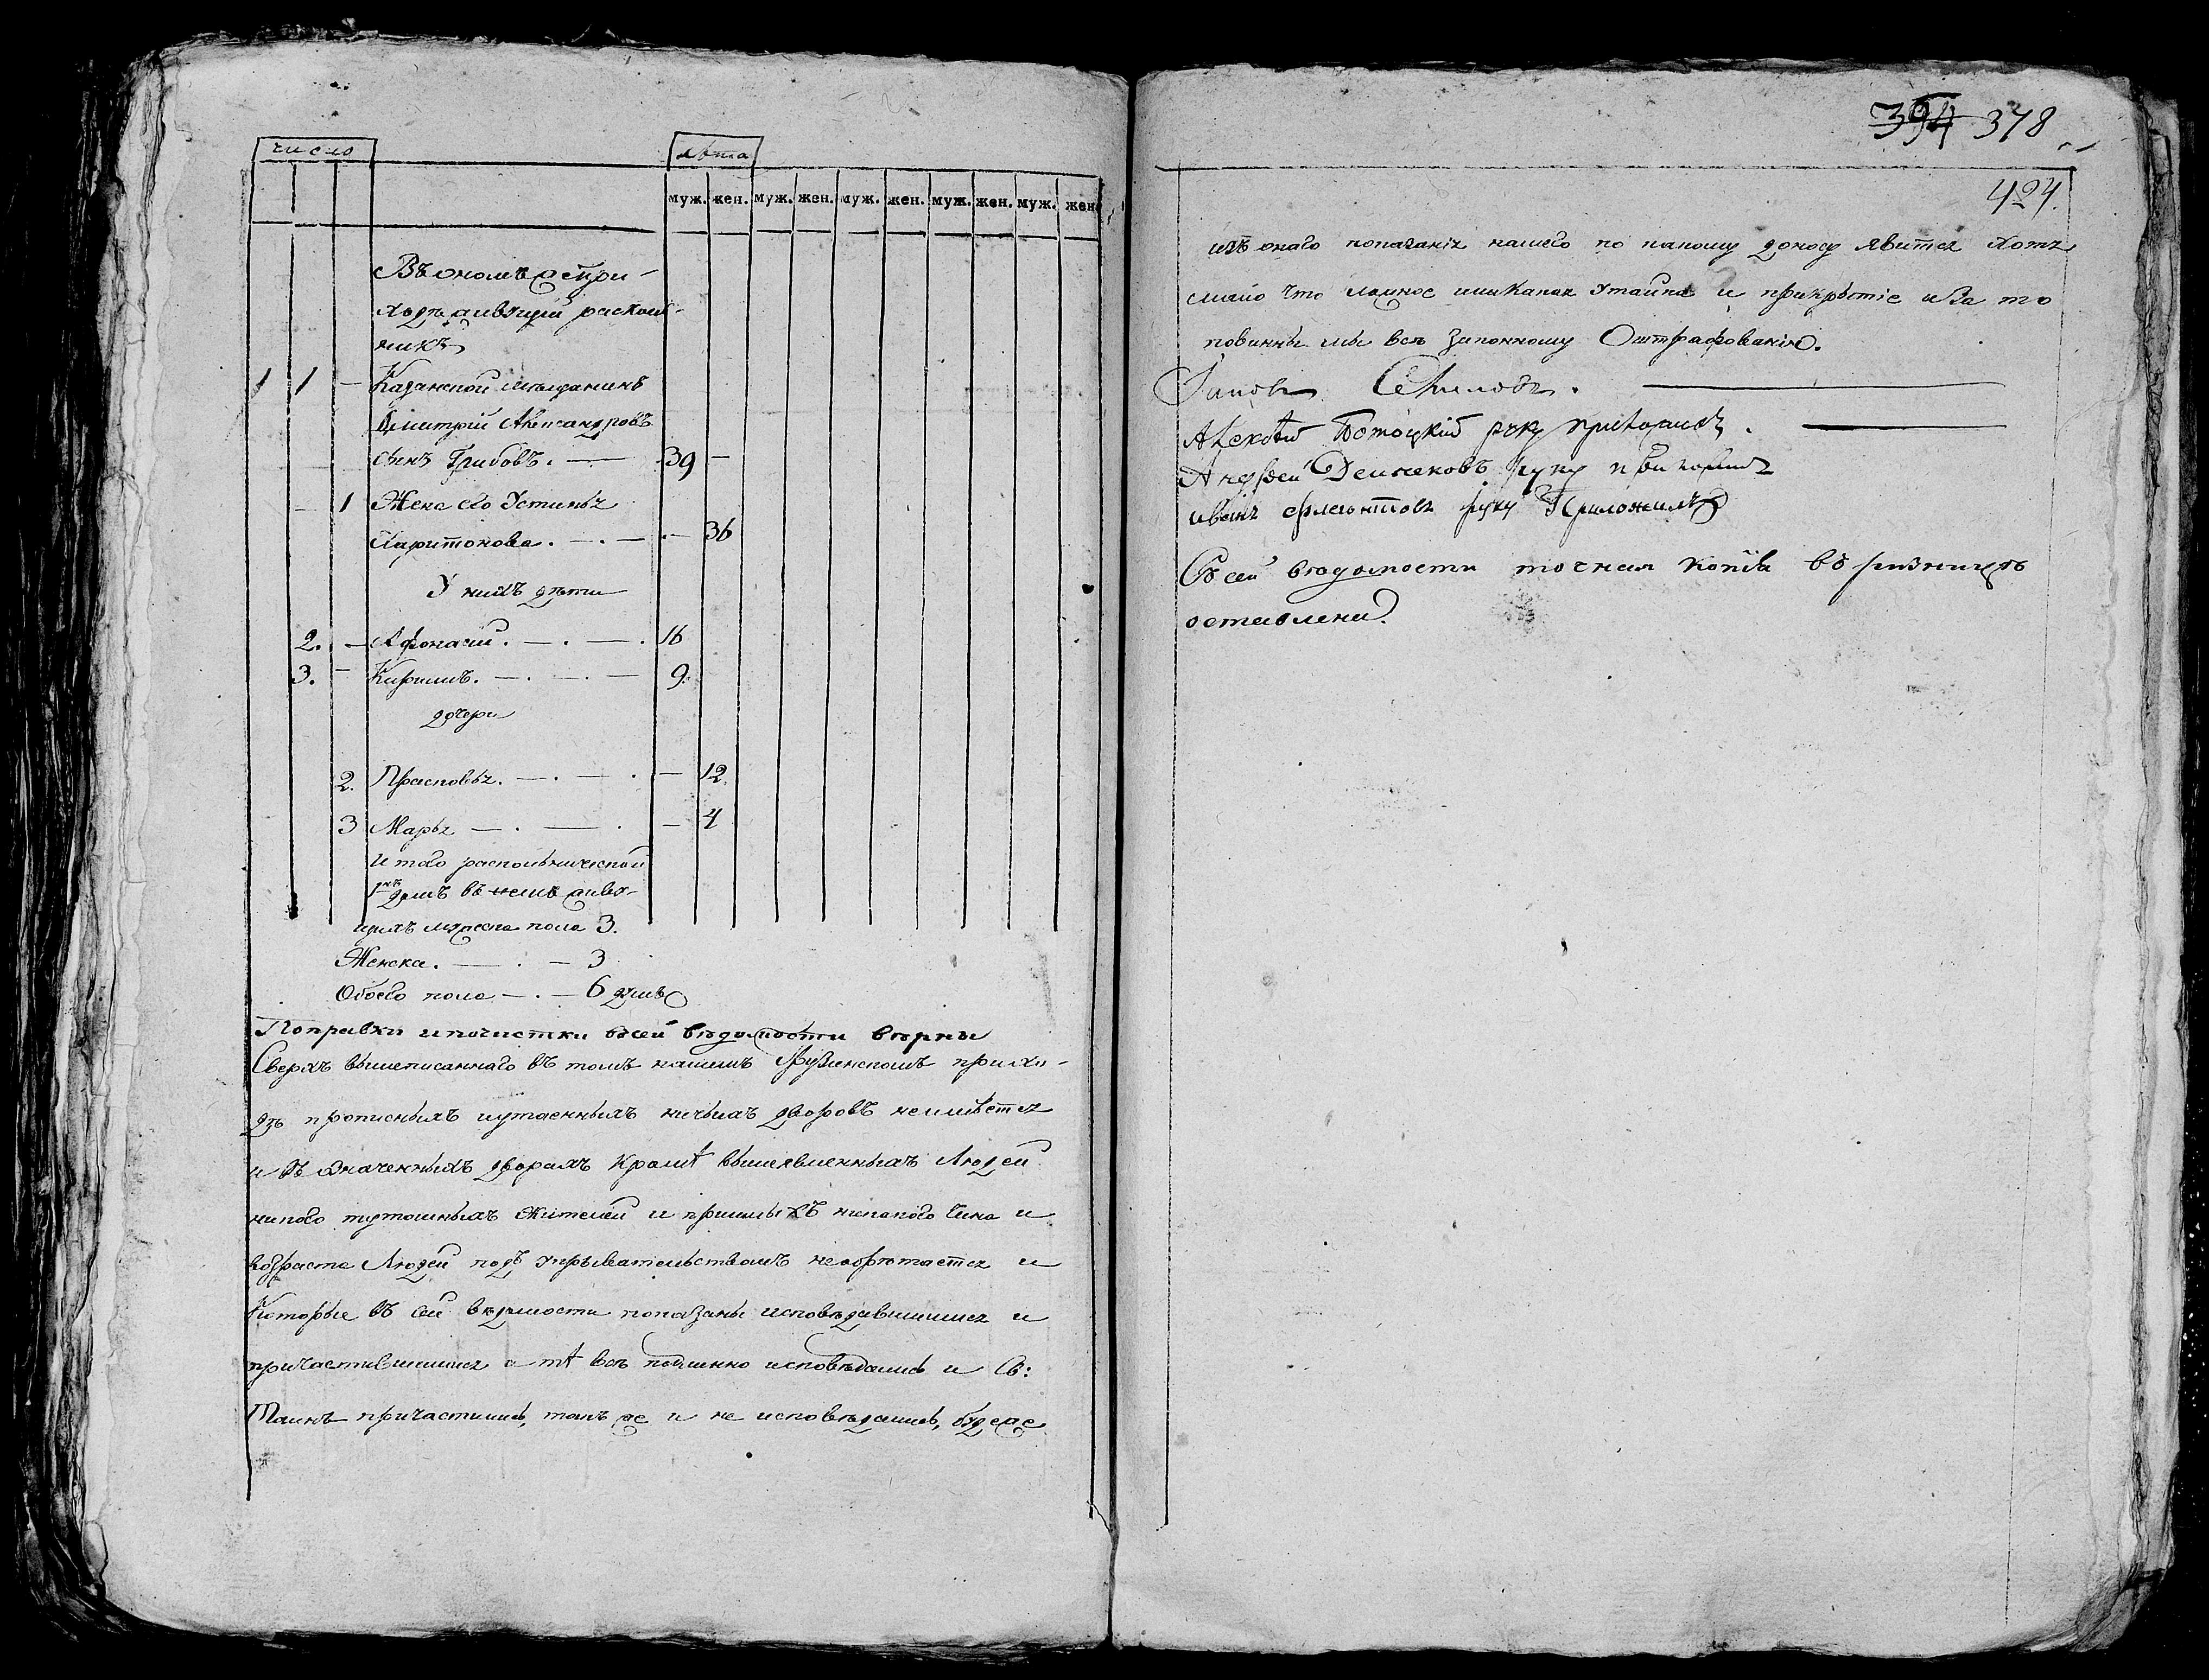 число
лѣта
муж. жен. муж. жен. муж. жен. муж. жен. муж. жен.
Въ ономъ же при-
ходѣ живущiй расколь-
никъ
1 1 — Казанской мѣщанинъ
Дмитрiй Александровъ
сынъ Грибовъ. — 39 —
— 1 Жена его Устинья
Харитонова. — . — . — 36
У нихъ дѣти
2. — Афонасiй. — . — . 16
3. — Кирилъ. — . — . — 9.
дочери
2. Прасковья. — . — . — 12.
3 Марья — . — . — 4
Итого раскольнической
домъ въ немъ живу-
щихъ мужеска пола 3.
Женска. — . — 3
Обоего пола — . — 6 душъ
Поправки и почистки въ сей вѣдомости вѣрны
Сверхъ вышеписаннаго въ томъ нашемъ прихо-
дѣ прописныхъ и утаенныхъ ничьихъ дворовъ неимѣется
и въ означенныхъ дворахъ кромѣ вышеявленныхъ Людей
никого тутошныхъ Жителей и пришлыхъ никакого Чина и
возраста Людей подъ укрывательствомъ необрѣтается и
Которые въ сей вѣдомости показаны исповѣдавшимися и
причастившимися а тѣ всѣ подлинно исповѣдались и Св:
Таинъ причастились, такъ же и не исповѣдались, буде же
394 378
424.
изъ онаго показанiя нашего по какому доносу явится хотя
мало что ложное или какая утайка и прикрытiе и за то
повинны мы всѣ законному Оштрафованiю.
Алексѣй руку приложилъ.
Андрей руку приложилъ
иванъ руку Приложилъ
Съ сей вѣдомости точная копiя въ ризницѣ
оставлена.